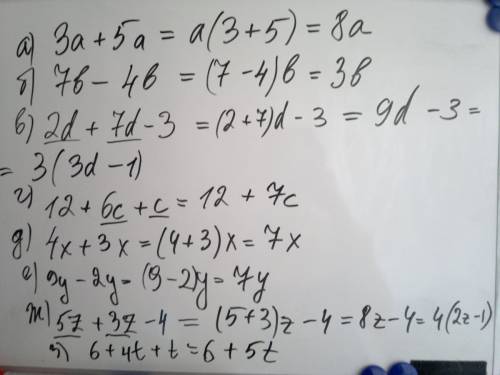 а) 3a + 5a = a(3+5) = 8a
б) 7в - 4в = (7-4)в = 3в
в) 2d + 7d - 3 = (2+7)d - 3 = 9d - 3 =
= 3(3d - 1)
г) 12 + 6c + c = 12 + 7c
д) 4x + 3x = (4+3)x = 7x
е) 9y - 2y = (9-2)y = 7y
ж) 5z + 3z - 4 = (5+3)z - 4 = 8z - 4 = 4(2z-1)
з) 6 + 4t + t = 6 + 5t